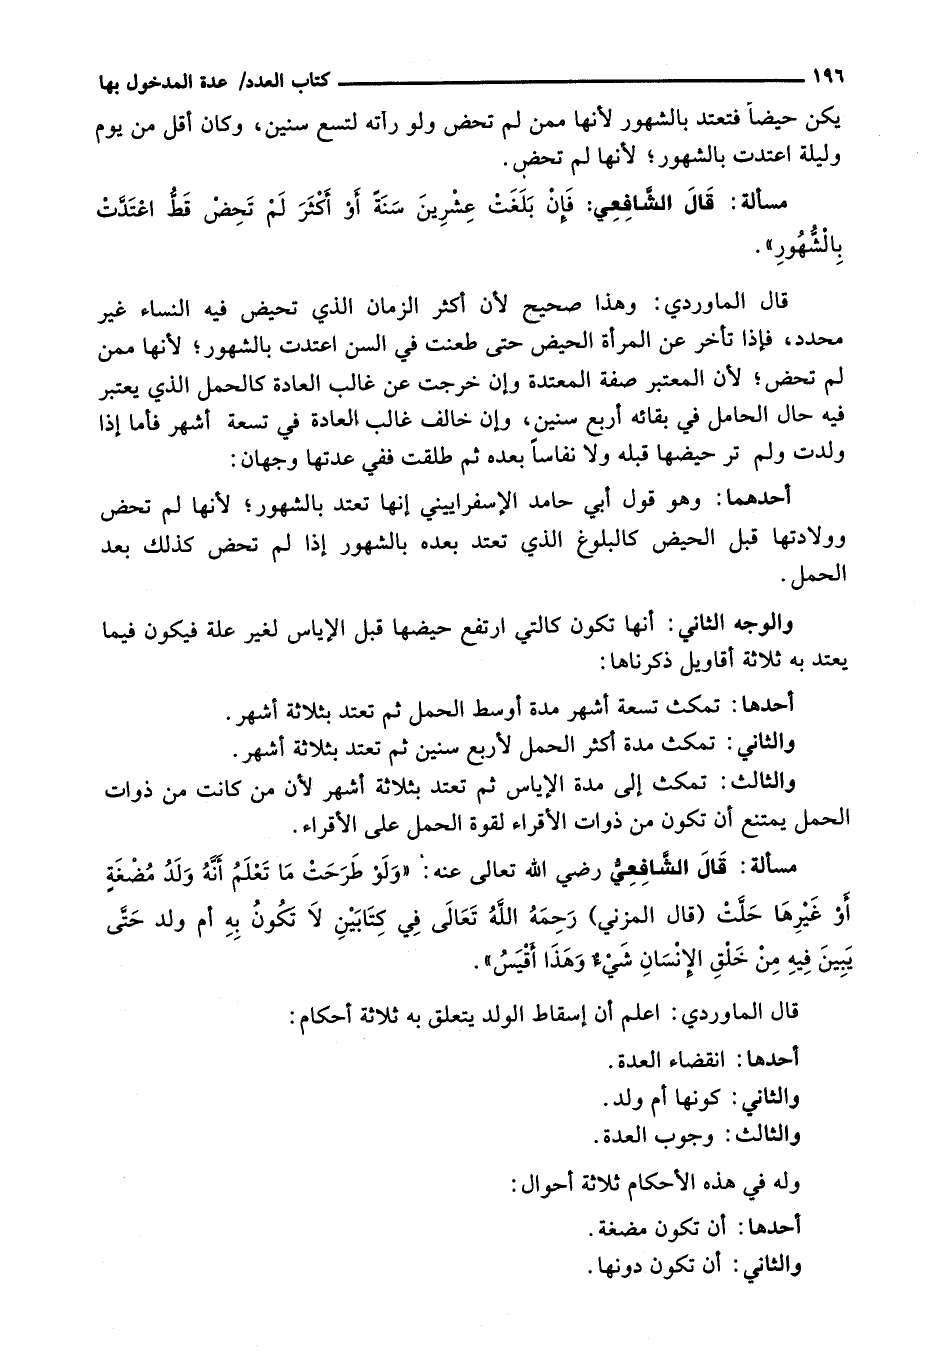 ١٩٦ ــــــــــــــــــــــــــــــــــــ كتاب العدد/ عدة المدخول بها
يكن حيضاً فتعتد بالشهور لأنها ممن لم تحض ولو رأته لتسع سنين، وكان أقل من يوم
وليلة اعتدت بالشهور؛ لأنها لم تحض.
مسألة: قَالَ الشَّافِعِي: فَإِنْ بَلَغَتْ عِشْرِينَ سَنَةً أَوْ أَكْثَرَ لَمْ تَحِضْ قَطُّ اعْتَدَّتْ
بِالْشُّهُورِ».
قال الماوردي: وهذا صحيح لأن أكثر الزمان الذي تحيض فيه النساء غير
محدد، فإذا تأخر عن المرأة الحيض حتى طعنت في السن اعتدت بالشهور؛ لأنها ممن
لم تحض؛ لأن المعتبر صفة المعتدة وإن خرجت عن غالب العادة كالحمل الذي يعتبر
فيه حال الحامل في بقائه أربع سنين، وإن خالف غالب العادة في تسعة أشهر فأما إذا
ولدت ولم تر حيضها قبله ولا نفاساً بعده ثم طلقت ففي عدتها وجهان:
أحدهما: وهو قول أبي حامد الإسفراييني إنها تعتد بالشهور؛ لأنها لم تحض
وولادتها قبل الحيض كالبلوغ الذي تعتد بعده بالشهور إذا لم تحض كذلك بعد
الحمل.
والوجه الثاني: أنها تكون كالتي ارتفع حيضها قبل الإياس لغير علة فيكون فيما
يعتد به ثلاثة أقاويل ذكرناها:
أحدها: تمكث تسعة أشهر مدة أوسط الحمل ثم تعتد بثلاثة أشهر.
والثاني: تمكث مدة أكثر الحمل لأربع سنين ثم تعتد بثلاثة أشهر.
والثالث: تمكث إلى مدة الإياس ثم تعتد بثلاثة أشهر لأن من كانت من ذوات
الحمل يمتنع أن تكون من ذوات الأقراء لقوة الحمل على الأقراء.
مسألة: قَالَ الشَّافِعِيُّ رضي الله تعالى عنه: «وَلَوْ طَرَحَتْ مَا تَعْلَمُ أَنَّهُ وَلَدُ مُضْغَةٍ
أَوْ غَيْرِهَا حَلَّتْ (قال المزني) رَحِمَهُ اللَّهُ تَعَالَى فِي كِتَابَيْنِ لَا تَكُونُ بِهِ أم ولد حَتَّى
يَبِينَ فِيهِ مِنْ خَلْقِ الإِنْسَانِ شَيْءٌ وَهَذَا أَقْيَسُ».
قال الماوردي: اعلم أن إسقاط الولد يتعلق به ثلاثة أحكام:
أحدها: انقضاء العدة.
والثاني: كونها أم ولد.
والثالث: وجوب العدة.
وله في هذه الأحكام ثلاثة أحوال:
أحدها: أن تكون مضغة.
والثاني: أن تكون دونها.